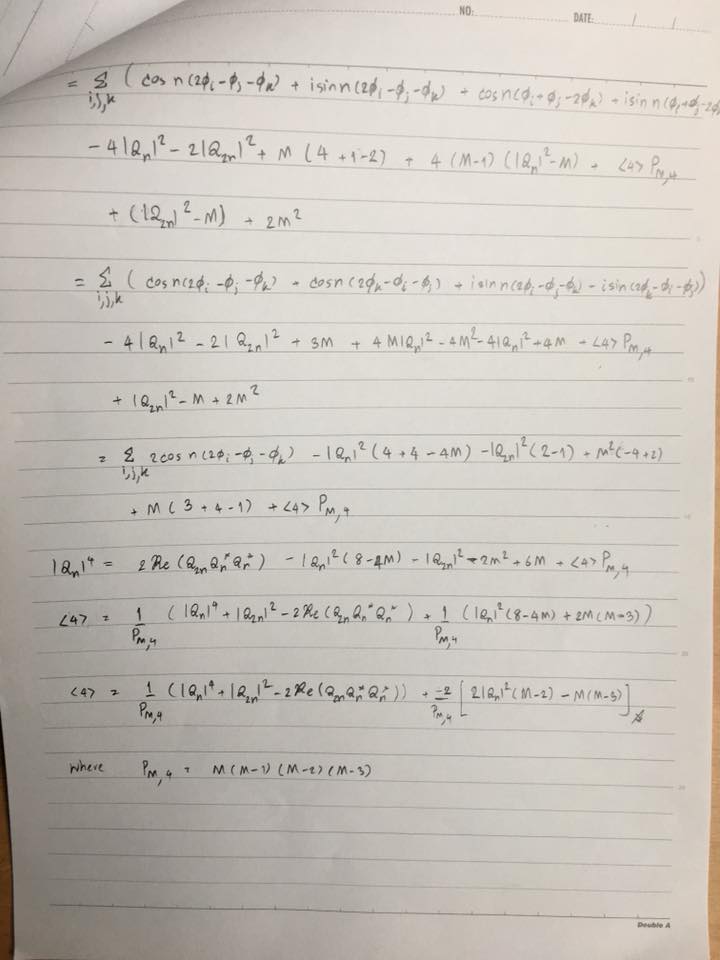 NO:
DATE: / /
= Σ_{i,j,k} ( cos n(2ϕ_i - ϕ_j - ϕ_k) + i sin n(2ϕ_i - ϕ_j - ϕ_k) + cos n(ϕ_i + ϕ_j - 2ϕ_k) + i sin n(ϕ_i + ϕ_j - 2ϕ
- 4|Q_n|^2 - 2|Q_{2n}|^2 + M (4 + 1 - 2) + 4 (M-1) (|Q_n|^2 - M) + <4> P_{M,4}
+ (|Q_{2n}|^2 - M) + 2M^2
= Σ_{i,j,k} ( cos n(2ϕ_i - ϕ_j - ϕ_k) + cos n(2ϕ_k - ϕ_i - ϕ_j) + i sin n(2ϕ_i - ϕ_j - ϕ_k) - i sin(2ϕ_k - ϕ_i - ϕ_j))
- 4|Q_n|^2 - 2|Q_{2n}|^2 + 3M + 4M|Q_n|^2 - 4M^2 - 4|Q_n|^2 + 4M + <4> P_{M,4}
+ |Q_{2n}|^2 - M + 2M^2
= Σ_{i,j,k} 2cos n(2ϕ_i - ϕ_j - ϕ_k) - |Q_n|^2 (4 + 4 - 4M) - |Q_{2n}|^2 (2-1) + M^2 (-4+2)
+ M (3 + 4 - 1) + <4> P_{M,4}
|Q_n|^4 = 2 Re (Q_{2n} Q_n^* Q_n^*) - |Q_n|^2 (8-4M) - |Q_{2n}|^2 - 2M^2 + 6M + <4> P_{M,4}
<4> = 1/P_{M,4} (|Q_n|^4 + |Q_{2n}|^2 - 2 Re (Q_{2n} Q_n^* Q_n^*) + 1/P_{M,4} (|Q_n|^2 (8-4M) + 2M (M-3))
<4> = 1/P_{M,4} (|Q_n|^4 + |Q_{2n}|^2 - 2 Re (Q_{2n} Q_n^* Q_n^*)) + -2/P_{M,4} [ 2|Q_n|^2 (M-2) - M (M-3) ]
where P_{M,4} = M (M-1) (M-2) (M-3)
Double A